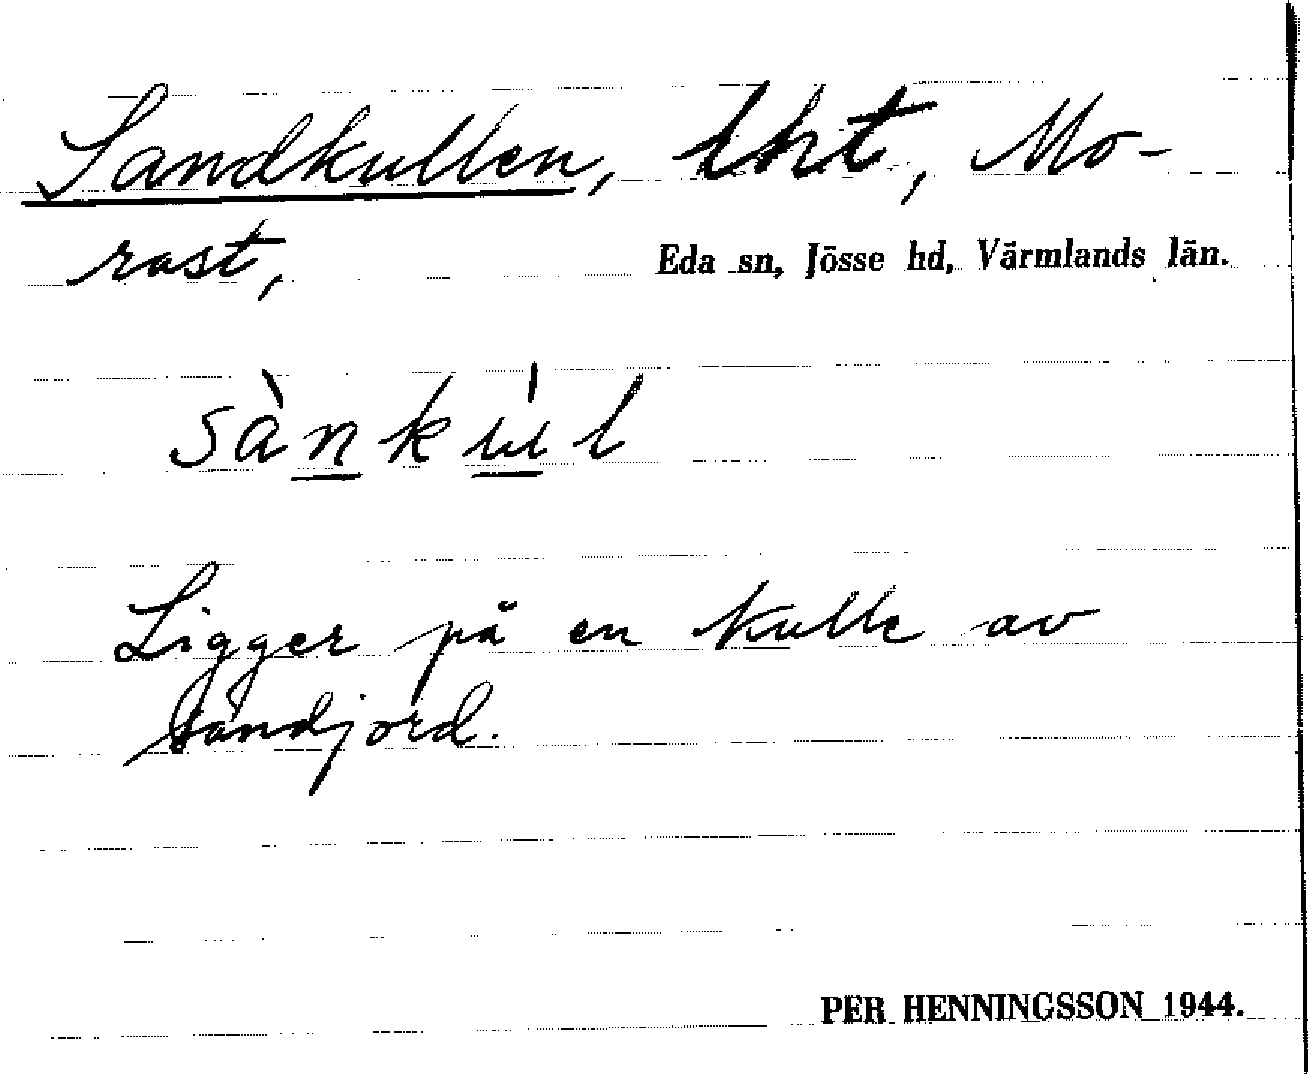 Sandkullen, lht, Mo-
rast, Eda sn, Jösse hd, Värmlands län.
sànkúl
Ligger på en kulle av
sandjord.
PER HENNINGSSON 1944.